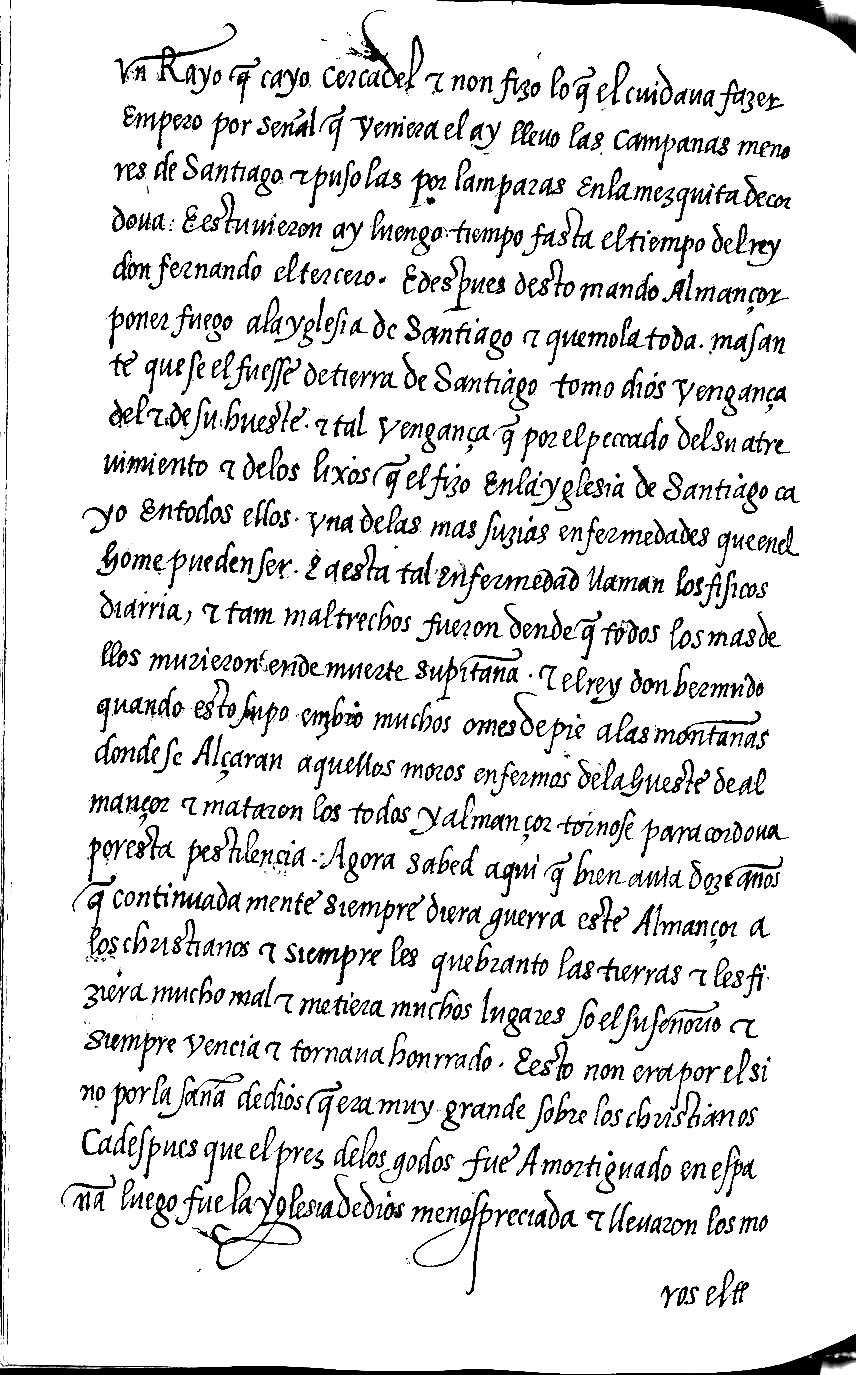 vn Rayo q̃ cayo cerca del ⁊ non fizo lo q̃ el cuidaua fazer
Empero por señal q̃ veniera el ay lleuo las campanas meno
res de Santiago ⁊ puso las por lamparas En la mezquita de cor
doua: E estuuieron ay luengo tiempo fasta el tiempo del rey
don fernando el tercero. E despues desto mando Almançor
poner fuego a la yglesia de Santiago ⁊ quemola toda. mas an
te que se el fuesse de tierra de Santiago tomo dios vengança
del ⁊ de su hueste. ⁊ tal vengança q̃ por el peccado del su atre
uimiento ⁊ de los lixos q̃ el fizo En la yglesia de Santiago ca
yo En todos ellos. vna de las mas suzias enfermedades que en el
home pueden ser. E a esta tal enfermedad llaman los fisicos
diarria, ⁊ tam maltrechos fueron dende q̃ todos los mas de
llos murieron ende muerte supitaña. ⁊ el rey don bermudo
quando esto supo embio muchos omes de pie a las montañas
donde se Alçaran aquellos moros enfermos de la hueste de al
mançor ⁊ mataron los todos y almançor tornose para cordoua
por esta pestilencia. Agora sabed aqui q̃ bien auia doze años
q̃ continuadamente siempre diera guerra este Almançor a
los christianos ⁊ siempre les quebranto las tierras ⁊ les fi
ziera mucho mal ⁊ metiera muchos lugares so el su señorio ⁊
siempre vencia ⁊ tornaua honrrado. E esto non era por el si
no por la saña de dios q̃ era muy grande sobre los christianos
Ca despues que el prez de los godos fue Amortiguado en espa
ña luego fue la yglesia de dios menospreciada ⁊ lleuaron los mo
ros el tr